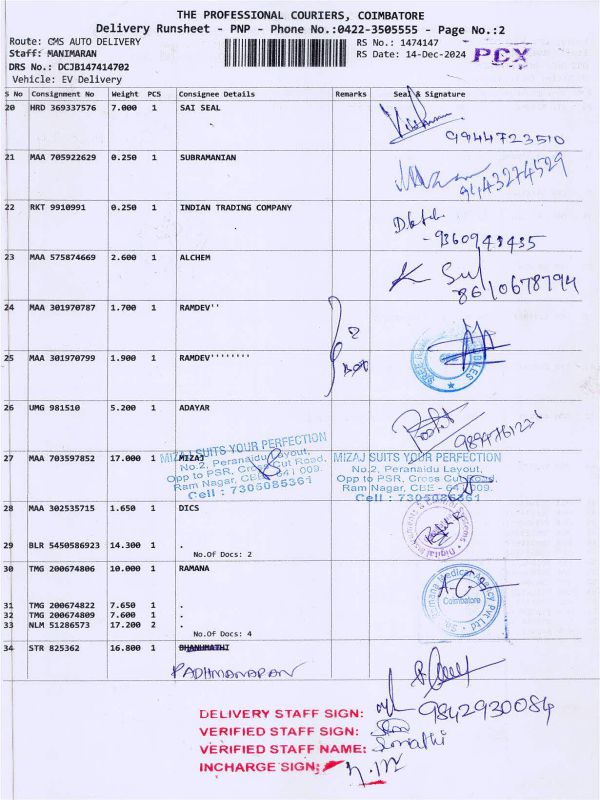 THE PROFESSIONAL COURIERS, COIMBATORE
Delivery Runsheet - PNP - Phone No.:0422-3505555 - Page No.:2
Route: CMS AUTO DELIVERY
Staff: MANIMARAN
DRS No.: DCJB147414702
Vehicle: EV Delivery
RS No.: 1474147
RS Date: 14-Dec-2024
PCX
S No Consignment No Weight PCS Consignee Details Remarks Seal & Signature
20 HRD 369337576 7.000 1 SAI SEAL
9944723510
21 MAA 705922629 0.250 1 SUBRAMANIAN
9443274529
22 RKT 9910991 0.250 1 INDIAN TRADING COMPANY
23 MAA 575874669 2.600 1 ALCHEM
8610678794
24 MAA 301970787 1.700 1 RAMDEV''
2
Box
25 MAA 301970799 1.900 1 RAMDEV''''''''
26 UMG 981510 5.200 1 ADAYAR
27 MAA 703597852 17.000 1 MIZAJ
MIZAJ SUITS YOUR PERFECTION
No.2, Peranaidu Layout,
Opp to PSR, Cross Cut Road,
Ram Nagar, CBE - 641 009.
Cell : 7305085361
MIZAJ SUITS YOUR PERFECTION
No.2, Peranaidu Layout,
Opp to PSR, Cross Cut Road,
Ram Nagar, CBE - 641 009.
Cell : 7305085361
28 MAA 302535715 1.650 1 DICS
29 BLR 5450586923 14.300 1 .
No.Of Docs: 2
30 TMG 200674806 10.000 1 RAMANA
Ramana Medical Agency Pvt Ltd
Coimbatore
31 TMG 200674822 7.650 1 .
32 TMG 200674809 7.600 1 .
33 NLM 51286573 17.200 2 .
No.Of Docs: 4
34 STR 825362 16.800 1 BHANUMATHI
PADHMANABAN
9842930084
DELIVERY STAFF SIGN:
VERIFIED STAFF SIGN:
VERIFIED STAFF NAME:
INCHARGE SIGN: